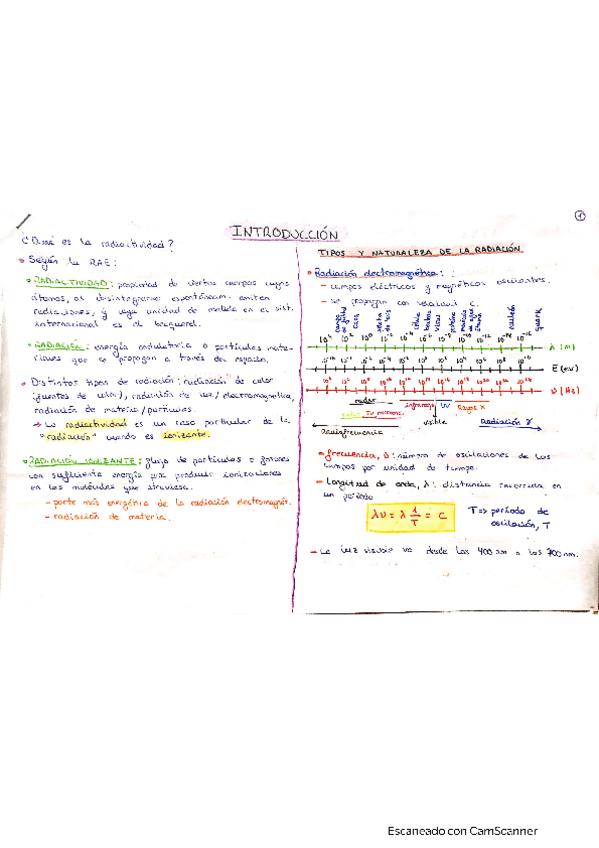 ①
INTRODUCCIÓN
¿Qué es la radiactividad?
Según la RAE:
RADIACTIVIDAD: propiedad de ciertos cuerpos cuyos
átomos, al desintegrarse espontáneam. emiten
radiaciones, y cuya unidad de medida en el sist.
internacional es el becquerel.
RADIACIÓN: energía ondulatoria o partículas mate-
riales que se propagan a través del espacio.
Distintos tipos de radiación: radiación de calor
(fuentes de calor), radiación de luz/electromagnética,
radiación de materia/partículas.
→ La radiactividad es un caso particular de la
"radiación" cuando es ionizante.
RADIACIÓN IONIZANTE: flujo de partículas o fotones
con suficiente energía para producir ionizaciones
en las moléculas que atraviesa.
- parte más energética de la radiación electromagnét.
- radiación de materia.
TIPOS Y NATURALEZA DE LA RADIACIÓN
Radiación electromagnética:
- campos eléctricos y magnéticos oscilantes.
- se propagan con velocidad c.
casa
célula
virus
núcleo
quark
λ (m)
E (eV)
ν (Hz)
radar
infrarrojo
UV
Rayos X
visible
Radiación γ
Radiofrecuencia
- frecuencia, ν: número de oscilaciones de los
campos por unidad de tiempo.
- Longitud de onda, λ: distancia recorrida en
un período
λν = λ 1/T = c
T => período de
oscilación, T
- La luz visible va desde los 400 nm a los 700 nm.
Escaneado con CamScanner